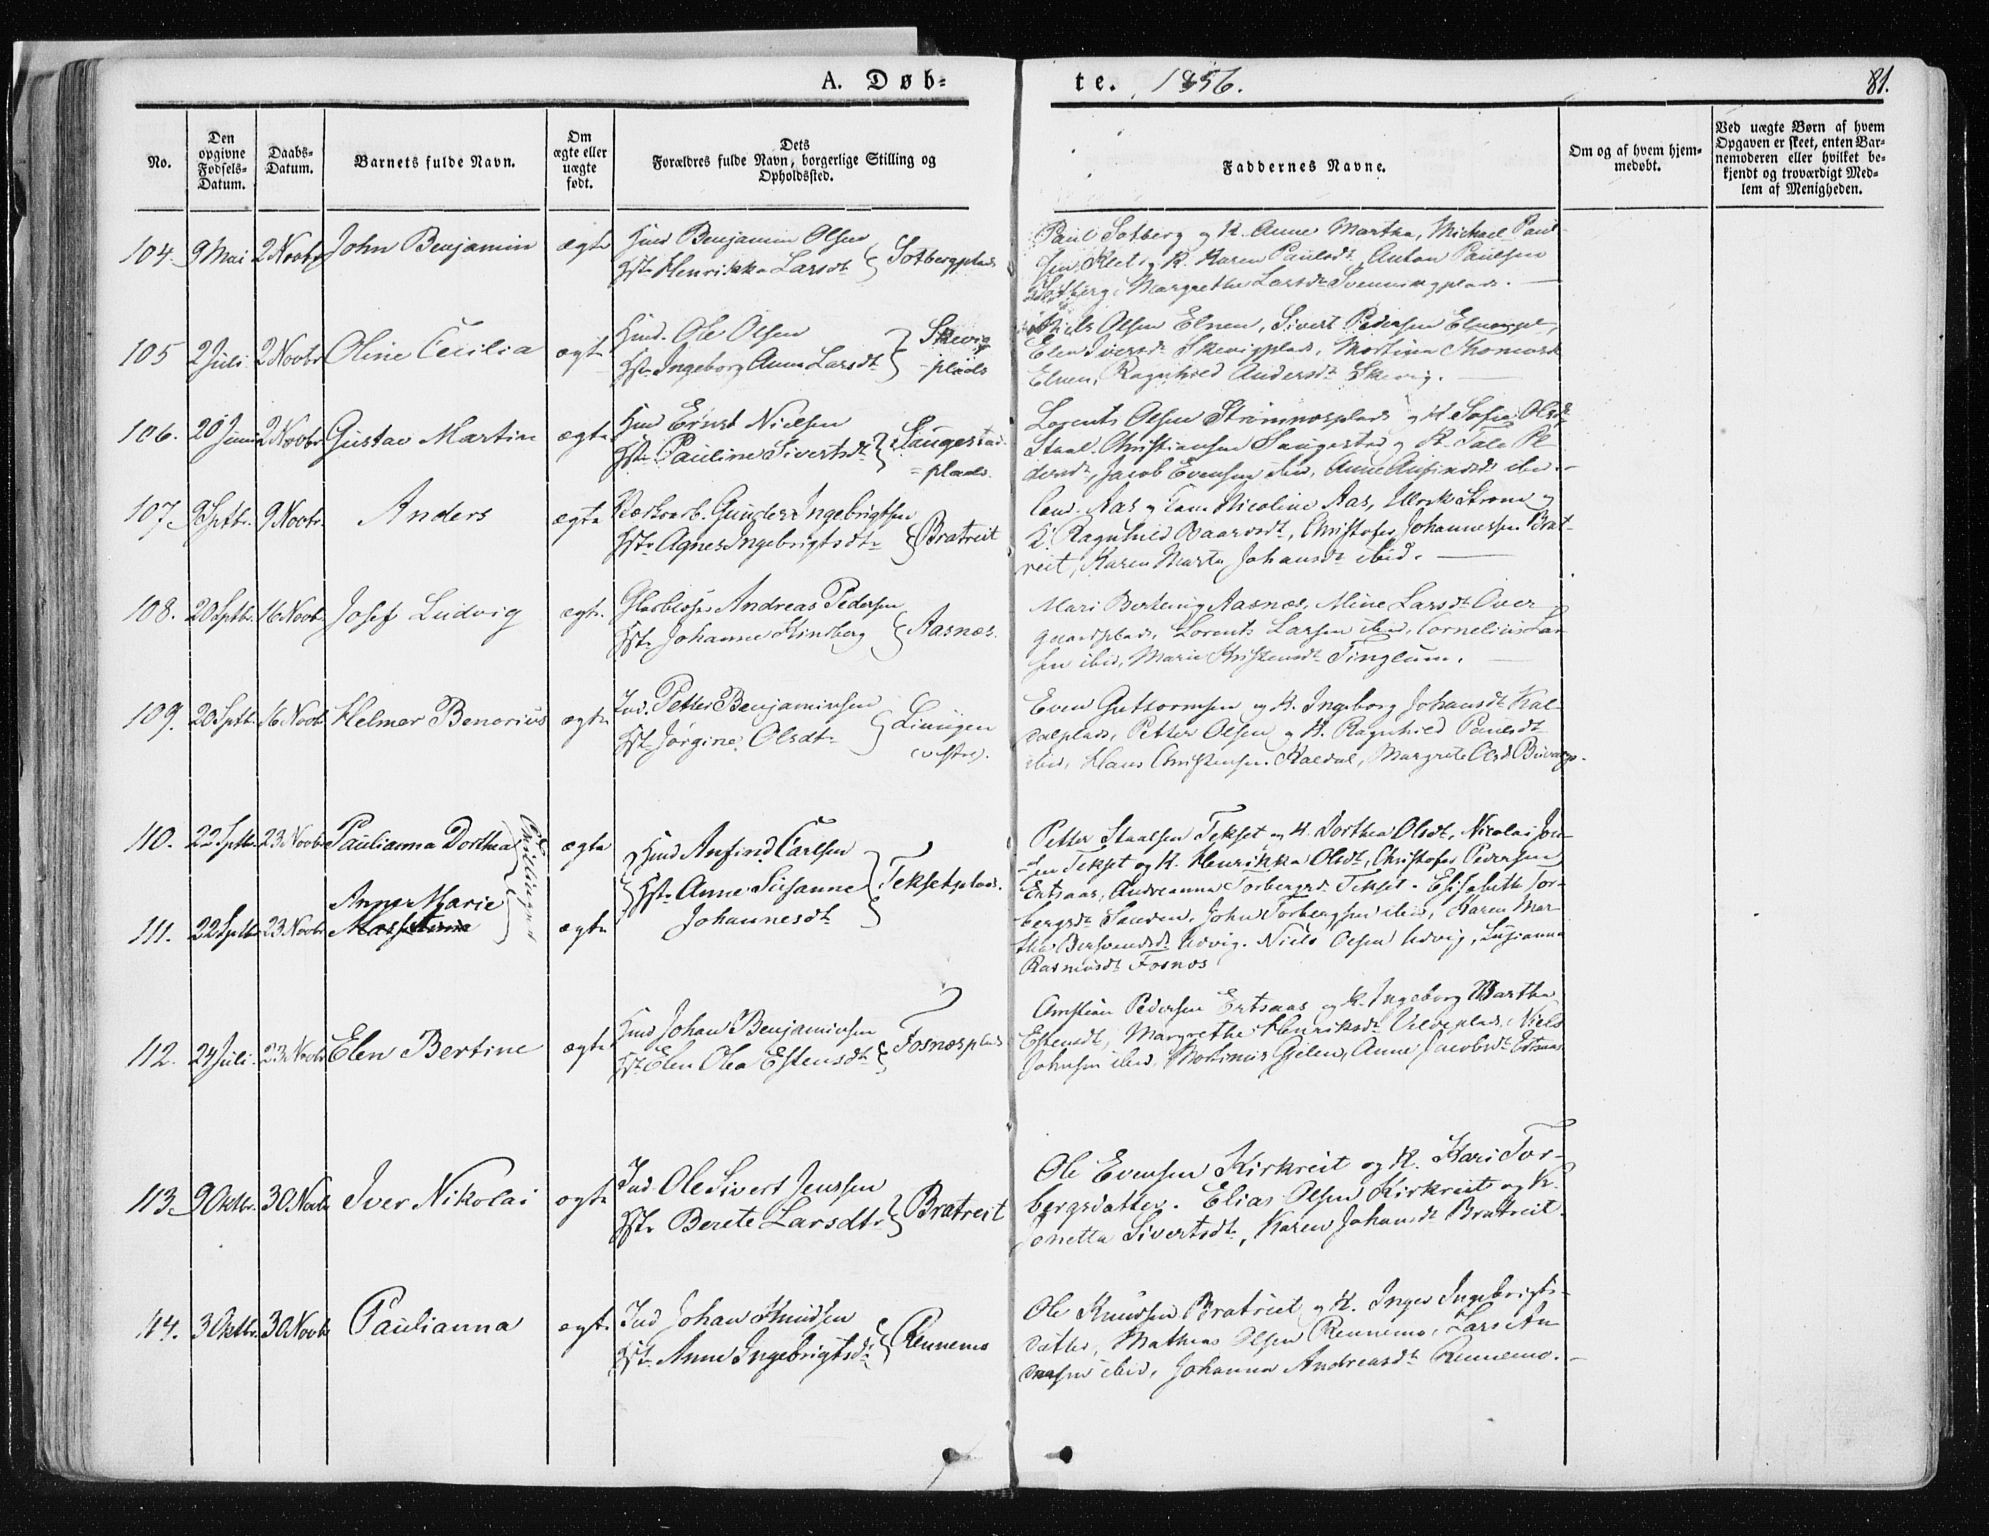 A. Døb-
te. 1856.
81.
No.
Den opgivne Fødsels-Datum.
Daabs-Datum.
Barnets fulde Navn.
Om ægte eller uægte født.
Dets Forældres fulde Navn, borgerlige Stilling og Opholdssted.
Faddernes Navne.
Om og af hvem hjem-medøbt.
Ved uægte Børn af hvem Opgaven er skeet, enten Bar-nemoderen eller hvilket be-kjendt og troværdigt Med-lem af Menigheden.
104. 9 Mai 2 Novbr John Benjamin ægte
Hmd Benjamin Olsen
Hst. Henrikka Larsdt. } Sotbergplads
Paul Sotberg og K. Anne Martha, Michael Paul-
sen, og K. Karen Paulsdt, Anton Paulsen
Sotberg, Margrethe Larsdt Svenningplads.
105 2 Juli 2 Novbr Oline Cecilia ægte
Hmd. Ole Olsen
Hst. Ingeborg Anna Larsdt } Skevig
-plads
Niels Olsen Elnen, Sivert Pedersen
Elen Iversdt Skevigplads, Martina
Elnen, Ragnhild Andersdt Skevig.
106. 20 Juni 2 Novbr. Gustav Martin ægte
Hmd Ernst Nielsen
Hst. Pauline Sivertsdt } Saugestad
=plads.
Lorents Olsen Strømnesplads og K. Sofie Olsdt.
Staal Christiansen Saugestad og K. Pe-
dersdt, Jacob Evensen ibid, Anne ibid.
107. 9 Septbr. 9 Novbr. Anders ægte
Gunder Ingebrigtsen
Hst. Agnes Ingebrigtsdt. } Bratreit
Aas og Nicoline Aas, Strøm og
K. Ragnhild Baardsdt, Christofer Johannessen Brat-
reit, Karen Marta Johansdt ibid.
108. 20 Septbr. 16 Novbr. Josef Ludvig ægte.
Andreas Pedersen
Hst. Johanne Hindberg } Aasnæs.
Mari Aasnæs, Mine Larsdt Over-
gaardsplads, Lorents Larsen ibid, Cornelius Lar-
sen ibid, Marie Kristensdt Tinglum.
109. 20 Septbr. 16 Novbr. Helmer Benorius ægte
Ind. Petter Benjaminsen
Hst Jørgine Olsdt. } Liungen
(vestre).
Even Guttormsen og K. Ingeborg Johansdt Kal-
dalplads, Petter Olsen og K. Ragnhild Paulsdt
ibid, Hans Christensen Kaldal, Margrete Olsdt
110. 22 Septbr 23 Novbr Paulianna Dorthea ægte
Tvillinger
111. 22 Septbr 23 Novbr Anne Marie ægte
Hmd Anfind Carlsen
Hst. Anne Susanne
Johannesdt } Teksetplads.
Petter Staalsen Tekset og K. Dorthea Olsdt, Nicolai Jon-
sen Tekset og K. Henrikka Olsdt, Christofer Pedersen
Ertsaas, Andreanna Torbergsd. Tekset. Elisabeth Tor-
bergsdt Sanden, John Torbergsen ibid, Karen Mar-
tha Utvig. Niels Olsen Utvig, Susianna
Rasmusdt Fosnos
112. 24 Juli 23 Novbr Elen Bertine ægte
Hmd Johan Benjaminsen
Hst. Elen Olea Estensdt } Fosnosplads
Christian Pedersen Ertsaas og K. Ingeborg Martha
Estensdt, Margrethe Henriksdt Niels
Johnsen ibid, Gjelen, Anne Jacobsdt Ertsaas
113. 9 Oktbr. 30 Novbr Iver Nikolai ægte
Ind. Ole Sivert Jenssen
Hst. Berete Larsdt. } Bratreit
Ole Evensen Kirkreit og K. Kari Tor-
bergsdatter. Elias Olsen Kirkreit og K.
Jonetta Sivertsdt., Karen Johansdt Bratreit.
114. 3 Oktbr. 30 Novbr Paulianna ægte
Ind Johan Knudsen
Hst. Anne Ingebrigtsdt. } Rennemo
Ole Knudsen Bratreit og K. Inger Ingebrigts-
datter, Mathias Olsen Rennemo, Lars An-
ibid, Johanna Andreasdt Rennemo.